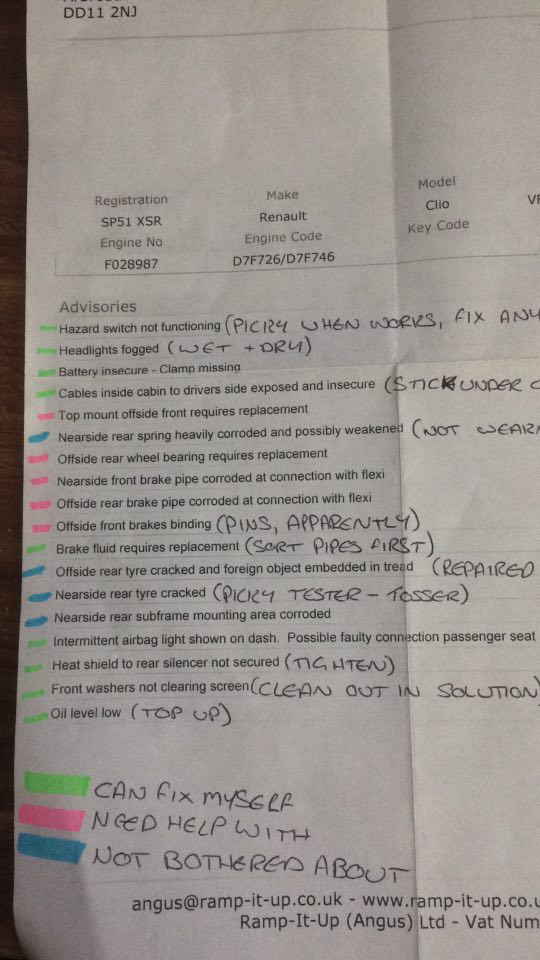 DD11 2NJ
Registration Make Model
SP51 XSR Renault Clio
Engine No Engine Code Key Code
F028987 D7F726/D7F746
Advisories
Hazard switch not functioning (PICKY WHEN WORKS, FIX ANY
Headlights fogged (WET + DRY)
Battery insecure - Clamp missing
Cables inside cabin to drivers side exposed and insecure (STICK UNDER
Top mount offside front requires replacement
Nearside rear spring heavily corroded and possibly weakened (NOT
Offside rear wheel bearing requires replacement
Nearside front brake pipe corroded at connection with flexi
Offside rear brake pipe corroded at connection with flexi
Offside front brakes binding (PINS, APPARENTLY)
Brake fluid requires replacement (SORT PIPES FIRST)
Offside rear tyre cracked and foreign object embedded in tread (REPAIRED
Nearside rear tyre cracked (PICKY TESTER - TOSSER)
Nearside rear subframe mounting area corroded
Intermittent airbag light shown on dash. Possible faulty connection passenger seat
Heat shield to rear silencer not secured (TIGHTEN)
Front washers not clearing screen (CLEAN OUT IN SOLUTION)
Oil level low (TOP UP)
CAN FIX MYSELF
NEED HELP WITH
NOT BOTHERED ABOUT
angus@ramp-it-up.co.uk - www.ramp-it-up.co.u
Ramp-It-Up (Angus) Ltd - Vat Num